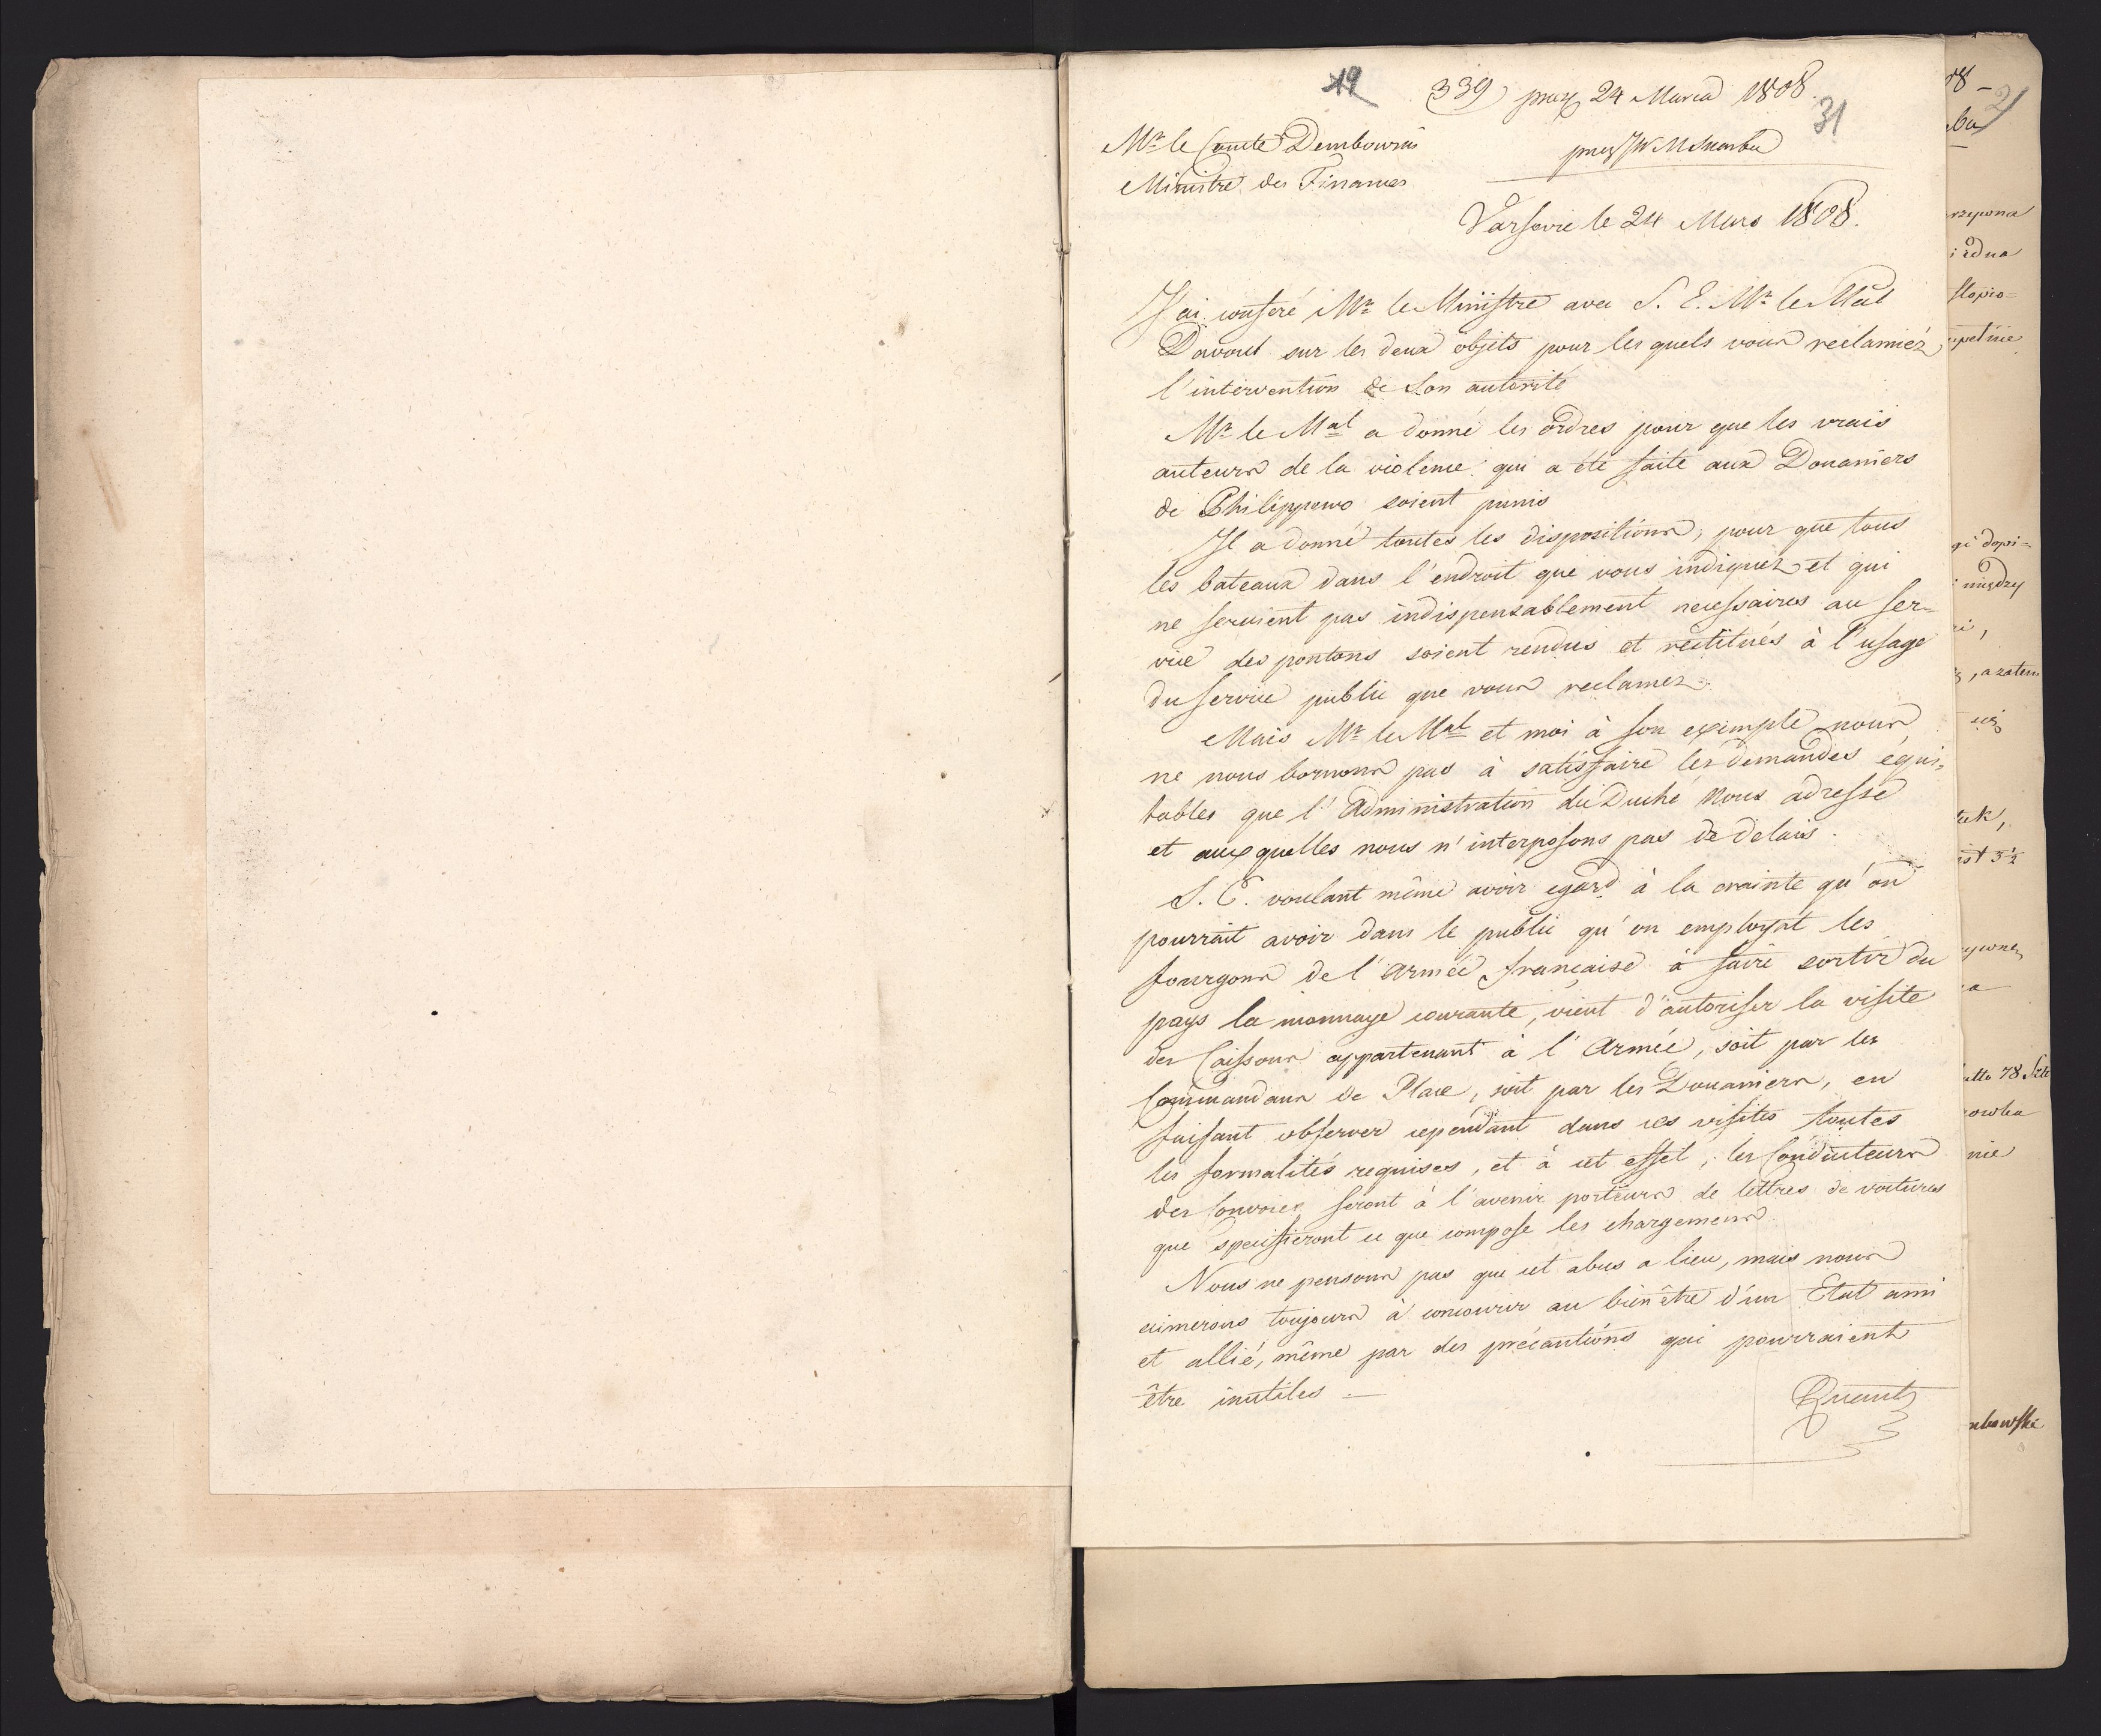 19
339) praes 24 Marca 1808.
31
Mr le Comte Dembowski
Ministre des Finances
Varsovie le 24 Mars 1808.
J'ai conferé Mr le Ministre avec S. E. Mr le Mal
Davout sur les deux objets pour les quels vous reclamiéz
l'intervention de son autorité
Mr le Mal a donné les ordres pour que les vrais
auteurs de la violence qui a été faite aux Douaniers
de Philippowo soient punis
Il a donné toutes les dispositions, pour que tous
les bateaux dans l'endroit que vous indiquez et qui
ne seraient pas indispensablement necessaires au ser=
vice des pontons soient rendus et restitués à l'usage
du service public que vous reclamez.
Mais Mr le Mal et moi à son exemple nous
ne nous bornons pas à satisfaire les demandes équi=
tables que l'Administration du Duché nous adresse
et aux quelles nous n'interposons pas de delais.
S. E. voulant même avoir egard à la crainte qu'on
pourrait avoir dans le public qu'on employat les
fourgons de l'armée française à faire sortir du
pays la monnaye courante, vient d'autoriser la visite
des Caissons appartenant à l'Armée, soit par les
Commandans de Place, soit par les Douaniers, en
faisant observer cependant dans ces visites toutes
les formalités requises, et à cet effet, les Conducteurs
des Convois seront à l'avenir porteurs de lettres de voitures
que specifieront ce que compose les chargemens
Nous ne pensons pas que cet abus a lieu, mais nous
aimerons toujours à concourir au bien être d'un Etat ami
et allié, même par des précautions qui pourraient
être inutiles =
08 –
2
rzepona
i edna
stopio=
upelnie
gi dopi=
i między
, a zatem
się
ist 3½
utto 78 Szt
owka
nie
mbowski